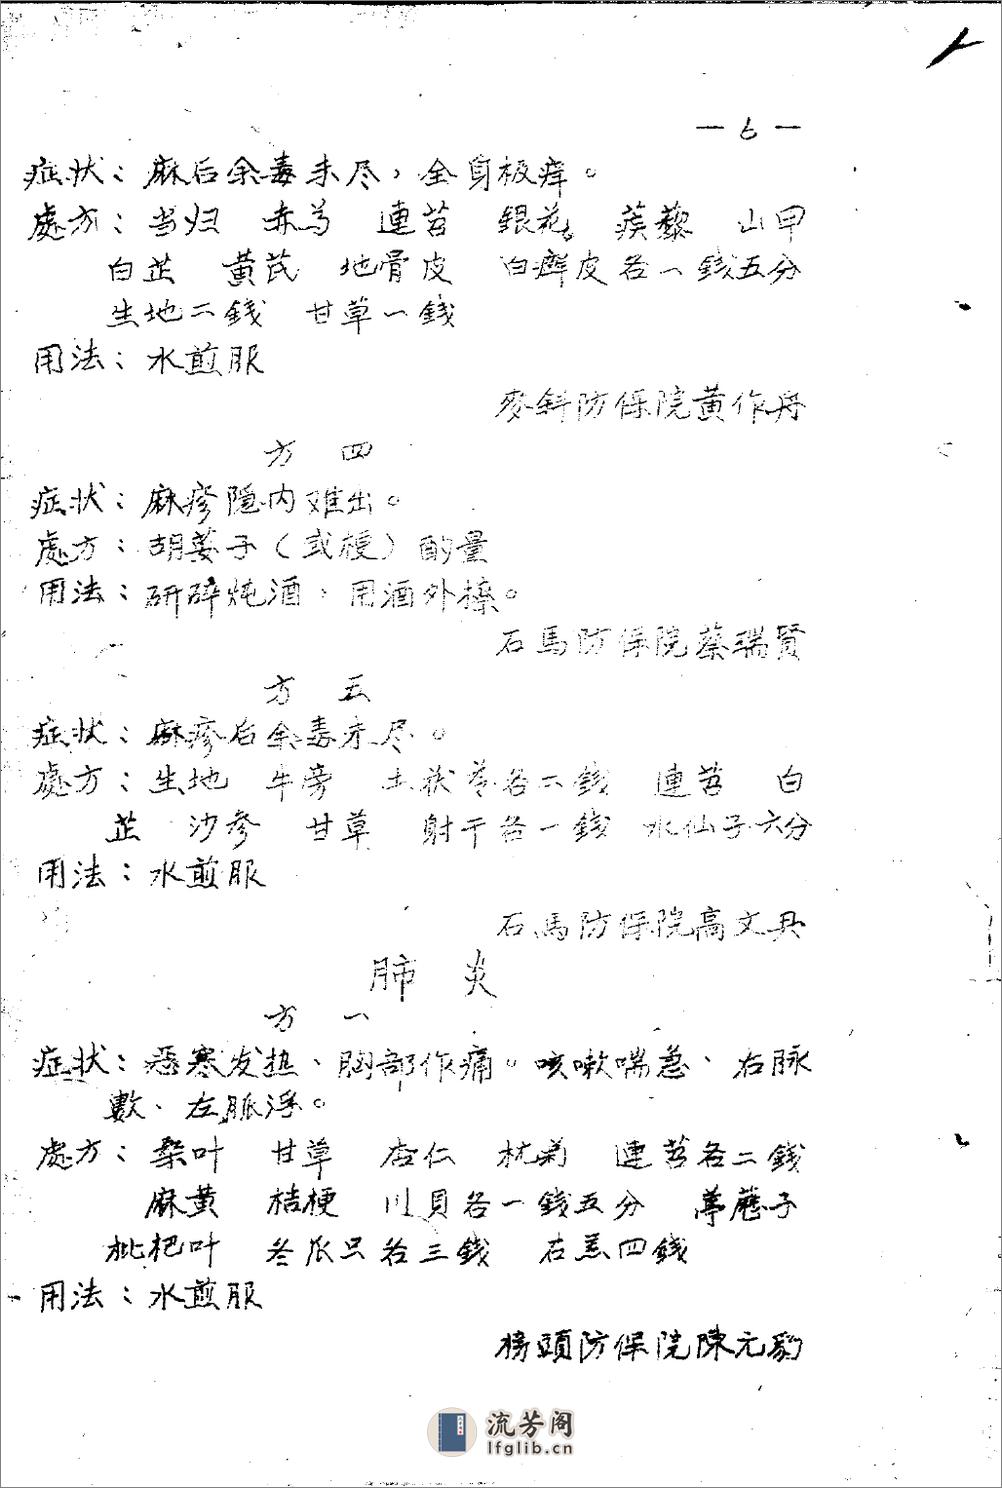 — 6 —
症状：麻后余毒未尽，全身极痒。
處方：当归 赤芍 連苕 銀花 蒺藜 山甲
白芷 黃芪 地骨皮 白癣皮各一錢五分
生地二錢 甘草一錢
用法：水煎服
麥斜防保院黃作丹
方 四
症状：麻疹隐内难出。
處方：胡荽子（或梗）酌量
用法：研碎炖酒、用酒外擦。
石馬防保院蔡瑞賢
方 五
症状：麻疹后余毒未尽。
處方：生地 牛旁 土茯苓各二錢 連苕 白
芷 沙参 甘草 射干各一錢 水仙子六分
用法：水煎服
石馬防保院高文丹
肺 炎
方 一
症状：恶寒发热、胸部作痛。咳嗽喘急、右脉
數、左脈浮。
處方：桑叶 甘草 杏仁 杭菊 連苕各二錢
麻黃 桔梗 川貝各一錢五分 葶藶子
枇杷叶 冬瓜只各三錢 石羔四錢
用法：水煎服
榜頭防保院陳元豹
流芳阁
lfglib.cn